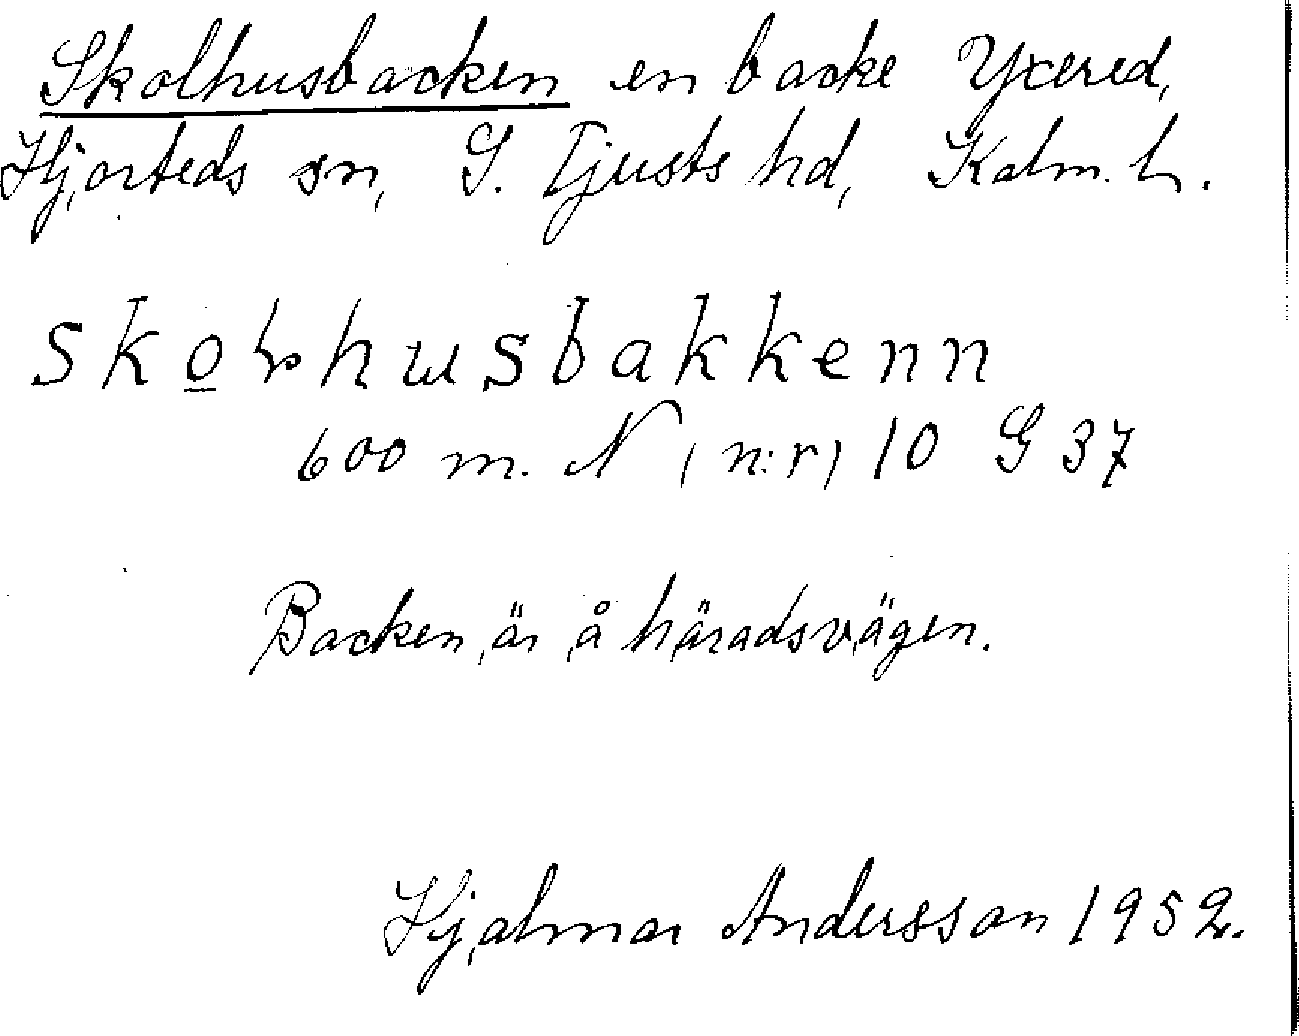 Skolhusbacken en backe Yxered,
Hjorteds sn, S. Tjusts hd, Kalm. l.
skoɫhusbakkenn
600 m. N (n:r) 10 G 37
Backen är å häradsvägen.
Hjalmar Andersson 1952.